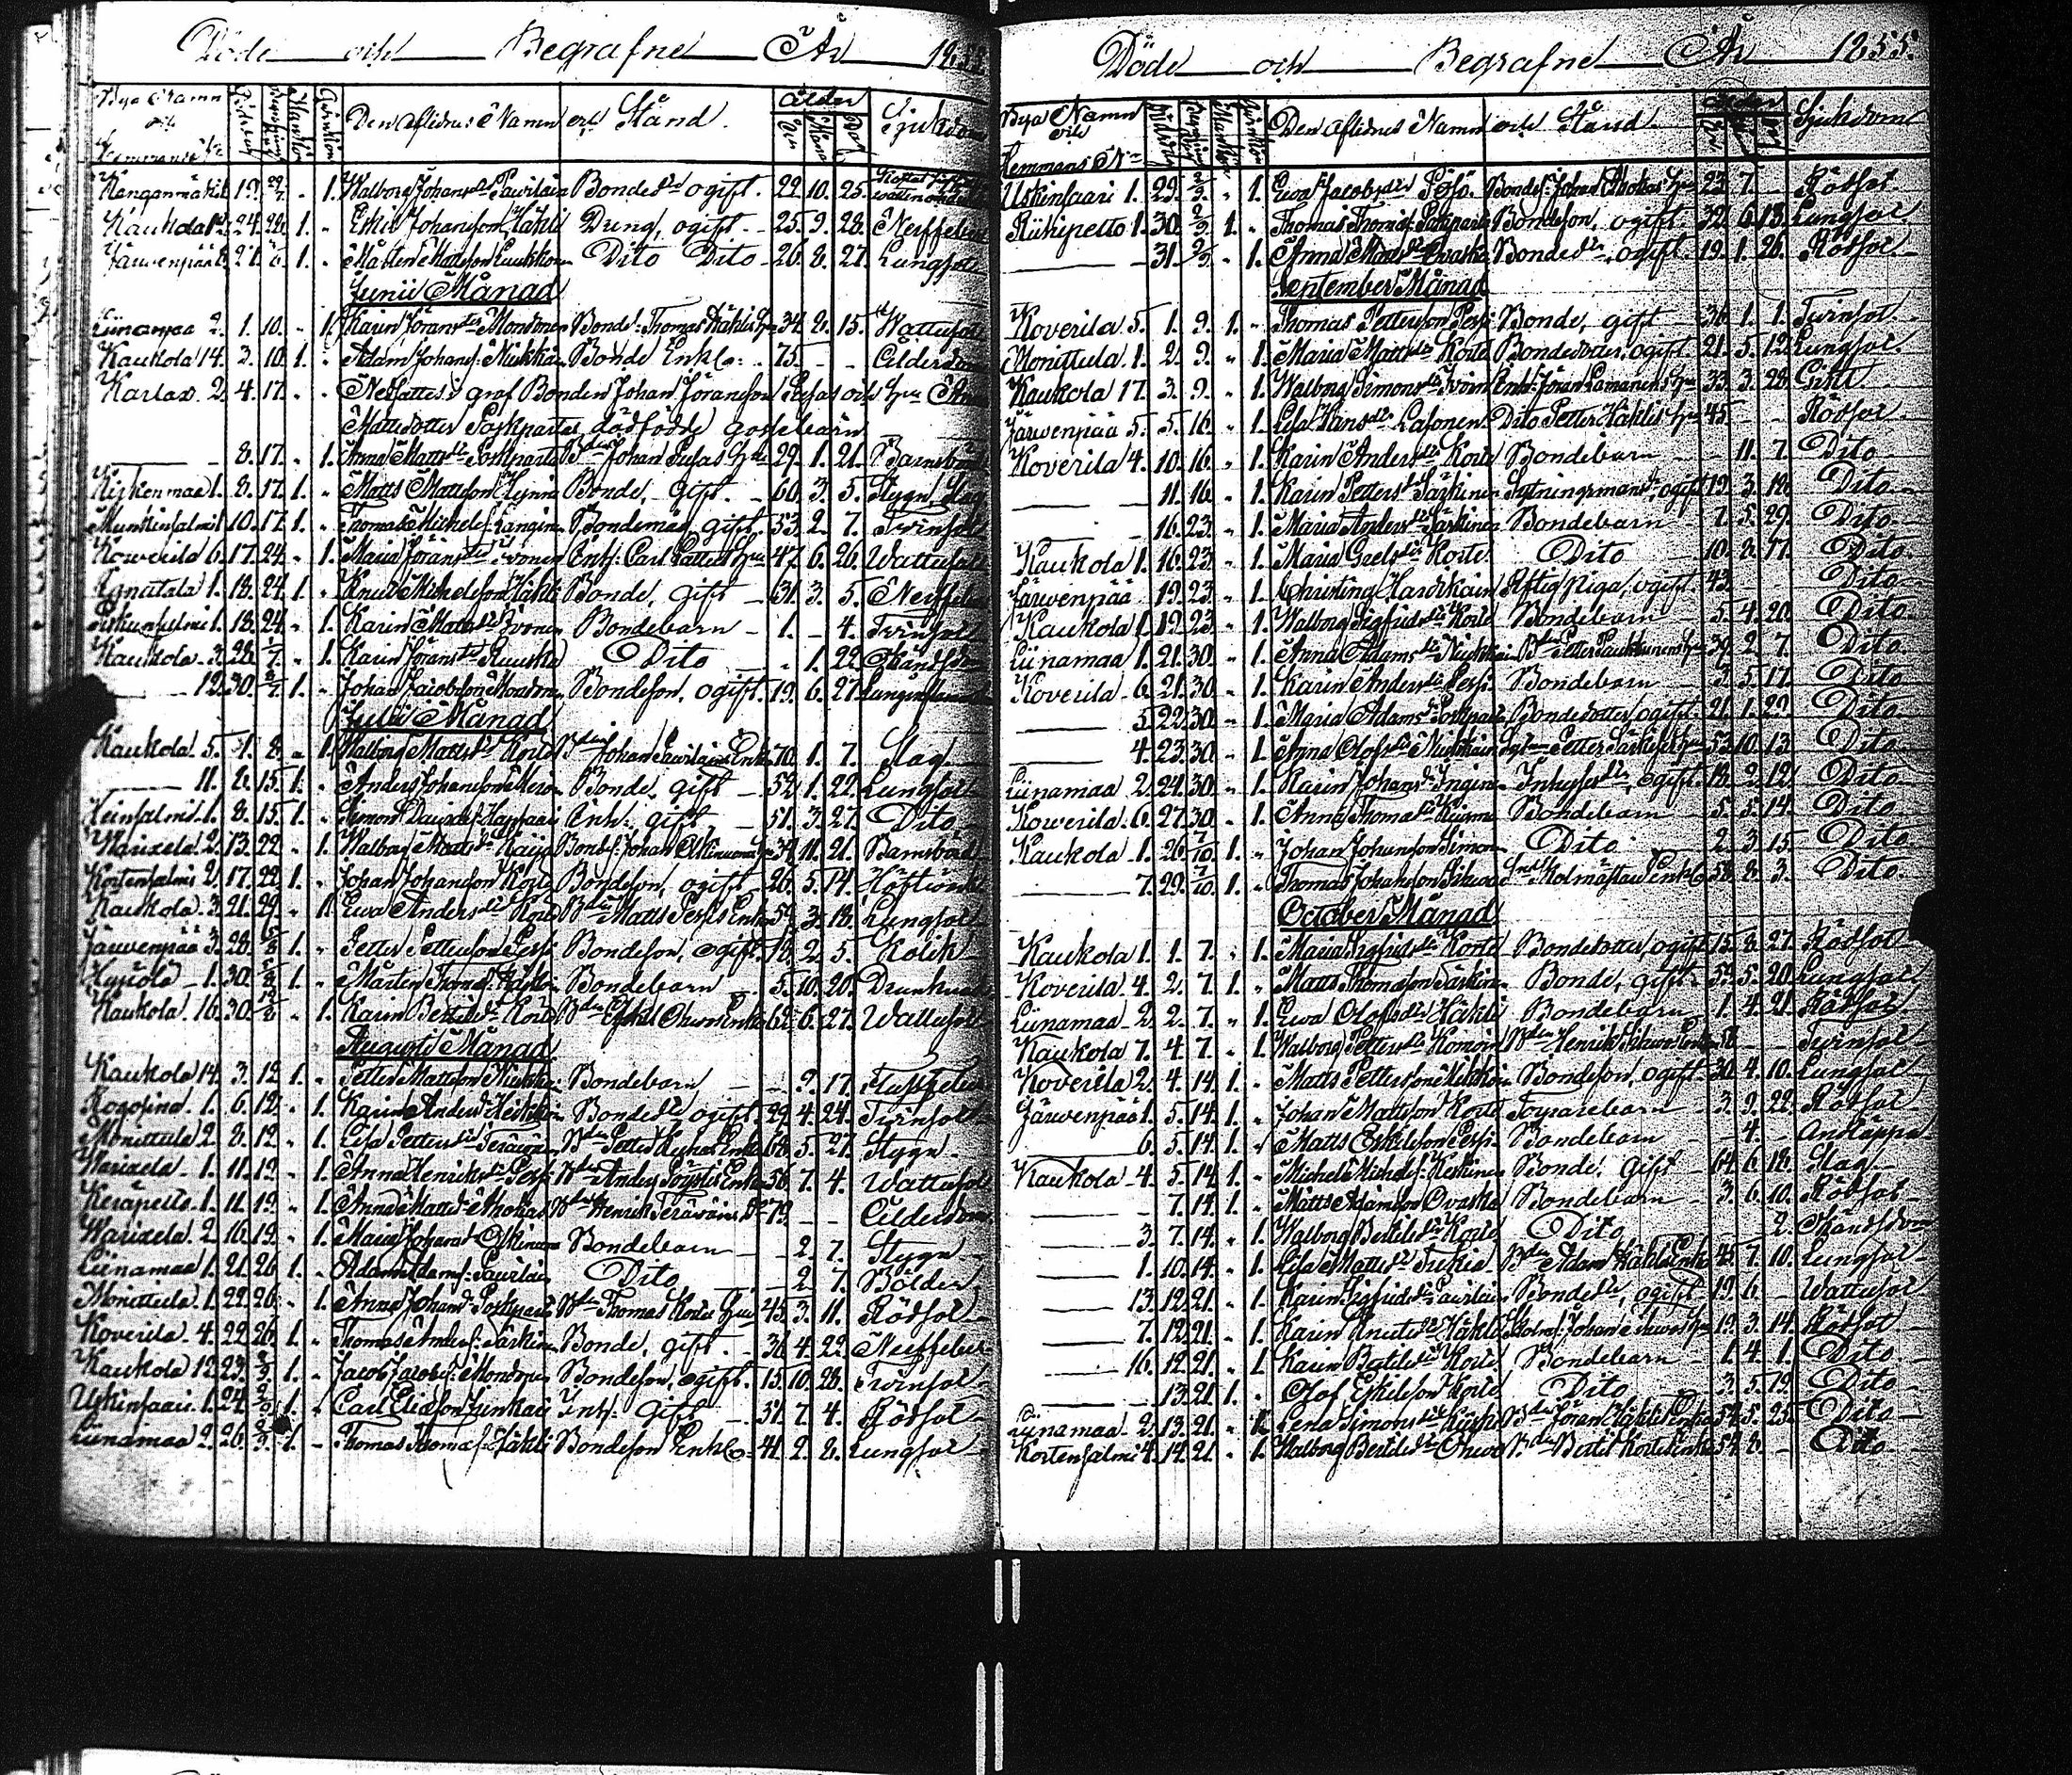 Döde och Begrafne År 1855
Bya Namn och Hemmans No Den Aflidnes Namn och Stånd. Ålder Sjukdom
Kanganmäki 1. 19. 1. Walborg Johansdr Paurilain Bondedr ogift. 22. 10. 25.
Kaukola 24. 1. Eskil Johansson Häkli Dräng, ogift. 25. 9. 28. Nerffeber
Järwenpää 27. 1. Mårten Mattsson Luukkon Dito Dito 26. 8. 27. Lungsot
Junii Månad
Liinamaa 2. 1. 10. 1. Karin Jöransdr Mondonen Bonde: Thomas Häklis Hu 34. 2. 15. Wattusot
Kaukola 14. 3. 10. 1. Adam Johans: Miukkai Bonde Enkl: 75. Ålderdom
Karlax 2. 4. 17. Nersattes i graf Bonden Johan Jöransson Pusas och Hu Anna
Mattsdotter Poskpartas dödfödde gossebarn
8. 17. 1. Anna Mattsdr Poskparta Bden Johan Pusas Hu 29. 1. 21. Barnsbörd
1. 8. 17. 1. Matts Mattsson Hynnin Bonde, gift. 60. 3. 5. Stygn, Slag
10. 17. 1. Thomas Michels: Kangin Bondemåg, gift. 53. 2. 7. Twinsot
Kowerila 6. 17. 24. 1. Maria Jöransdr Ivonen Enh: Carl Hu 47. 6. 26. Wattusot
1. 18. 24. 1. Knut Michelsson Häkli Bonde, gift 31. 3. 5. Nerffeber
1. 18. 24. 1. Karin Mattsdr Ivonen Bondebarn 1. 4. Twinsot
Kaukola 3. 28. 1/7 1. Karin Jöransdr Ruuska Dito 1. 22. Okändsdom
12. 30. 1. Johan Jacobsson Mondonen Bondeson, ogift. 19. 6. 27. Lunginflam
Julii Månad
Kaukola 5. 1. 8. 1. Walborg Mattsdr Korte Bden Johan Paurilains Enka 70. 1. 7. Slag
11. 8. 15. 1. Anders Johansson Meron Bonde, gift 52. 1. 22. Lungsot
Heinsalmi 1. 8. 15. 1. Simon Davids: Happoin Enh: gift 51. 3. 27. Dito
Warixela 2. 13. 22. 1. Walborg Mattsdr Kaija Bonds: Johan Okinuora Hu 34. 11. 21. Barnsbörd
Kortensalmi 2. 17. 22. 1. Johan Johansson Korte Bondeson, ogift 26. 5. 14. Höftwärk
Kaukola 3. 21. 29. 1. Ewa Andersdr Korte Bden Matts Persis Enka 59. 3. 18. Lungsot
Järwenpää 3. 28. 5/8 1. Petter Pettersson Persi Bondeson, ogift. 18. 2. 5. Kolik
1. 30. 1. Mårten Thoms: Bondebarn 5. 10. 20. Drunknad
Kaukola 16. 30. 1. Karin Bertilsdr Korte Bden Eskil Ohwos Enka 62. 6. 27. Wattusot
Augusti Månad
Kaukola 14. 3. 12. 1. Petter Mattsson Miukkai Bondebarn 9. 17.
Rogosina 1. 6. 12. 1. Karin Andersdr Bondedr ogift 29. 4. 24. Twinsot
Monittula 2. 8. 12. 1. Lisa Pettersdr Teräwäin Bden Petter Enka 68. 5. 27. Stygn
Warixela 1. 11. 19. 1. Anna Henriksdr Persi Bden Anders Enka 56. 7. 4. Wattusot
Keräpelto 1. 11. 19. 1. Anna Mattsdr Ahokas Bden Henrik Teräwäin 79. Ålderdom
Warixela 2. 16. 19. 1. Maria Johansdr Okinuora Bondebarn 2. 7. Stygn
Liinamaa 1. 21. 26. 1. Adam Adams: Paurilain Dito 2. 7. Bölder
Monittula 1. 22. 26. 1. Anna Johansdr Poskparta Bden Thomas Kortes Hu 45. 3. 11. Rödsot
Koverila 4. 22. 26. 1. Thomas Anders: Särkinen Bonde, gift. 36. 4. 22. Nerffeber
Kaukola 12. 23. 1. Jacob Jacobs: Mondonen Bondeson, ogift. 15. 10. 28. Twinsot
Uskinsaari 1. 24. 1. Carl Ericsson Enh: gift 51. 7. 4. Rödsot
Liinamaa 2. 26. 1. Thomas Thomas: Häkli Bondeson Enkl: 41. 2. 8. Lungsot
Döde och Begrafne År 1855.
Bya Namn och Hemmans No Den Aflidnes Namn och Stånd. Ålder Sjukdom
Uskinsaari 1. 29. 2/9. 1. Ewa Jacobsdr Pösö. Bondes: Johan Ahokas Hu 23. 7. Rödsot.
Riihipelto 1. 30. 2/9. 1. Thomas Thomas: Poskparta Bondeson, ogift 32. 6. 13. Lungsot
31. 2/9. 1. Anna Mattsdr Ovaska Bondedr, ogift. 19. 1. 26. Rödsot.
September Månad
Koverila 5. 1. 9. 1. Thomas Pettersson Persi Bonde, gift 36. 1. 1. Twinsot.
Monittula 1. 2. 9. 1. Maria Mattsdr Korte Bondedotter, ogift 21. 5. 12. Lungsot.
Kaukola 17. 3. 9. 1. Walborg Simonsdr Ivoin Enh: Jöran Hu 33. 3. 28. Gikt.
Järwenpää 5. 5. 16. 1. Lisa Hansdr Lasonen Dito Petter Häklis Hu 45. Rödsot
Koverila 4. 10. 16. 1. Karin Andersdr Korte Bondebarn 11. 7. Dito
11. 16. 1. Karin Pettersdr Särkinen Sytningsmans dr, ogift 19. 3. 18. Dito
16. 23. 1. Maria Andersdr Särkinen Bondebarn 7. 5. 29. Dito
Kaukola 1. 16. 23. 1. Maria Korte Dito 10. 8. 17. Dito
Järwenpää 19. 23. 1. Christina Haudkain Aftig Piga, ogift. 43. Dito
Kaukola 1. 19. 23. 1. Walborg Sigfridsdr Korte Bondebarn 5. 4. 20. Dito
Liinamaa 1. 21. 30. 1. Anna Adamsdr Miukkai Bden Petter Paukkunens Hu 39. 2. 7. Dito
Koverila 6. 21. 30. 1. Karin Andersdr Persi Bondebarn 3. 5. 17. Dito
5. 22. 30. 1. Maria Adamsdr Poskparta Bondedotter, ogift. 21. 1. 29. Dito
4. 23. 30. 1. Anna Olofsdr Miukkain Petter Särkisis Hu 53. 10. 13. Dito
Liinamaa 2. 24. 30. 1. Karin Johansdr Inginen Inhyses dr, ogift. 18. 9. 12. Dito
Kowerila 6. 27. 30. 1. Anna Thomasdr Bondebarn 5. 5. 14. Dito
Kaukola 1. 26. 7/10. 1. Johan Johansson Simonen Dito 2. 3. 15. Dito
7. 29. 7/10. 1. Thomas Johansson Skolmästare Enkl 58. 8. 3. Dito
October Månad
Kaukola 1. 1. 7. 1. Maria Sigfridsdr Korte Bondedotter, ogift 15. 8. 27. Rödsot
Koverila 4. 2. 7. 1. Matts Thomasson Särkinen Bonde, gift 59. 5. 20. Lungsot
Liinamaa 2. 2. 7. 1. Ewa Olofsdr Häkli Bondebarn 1. 4. 21. Rödsot
Kaukola 7. 4. 7. 1. Walborg Pettersdr Komoin Bden Henrik Enka 58 Twinsot
Koverila 2. 4. 14. 1. Matts Pettersson Miukkoin Bondeson, ogift 30. 4. 10. Lungsot
Järwenpää 1. 5. 14. 1. Johan Mattsson Korte Torparebarn 3. 9. 22. Rödsot
6. 5. 14. 1. Matts Eskilsson Persi Bondebarn 4. Andtäppa
Kaukola 4. 5. 14. 1. Michel Michels: Bonde, gift 64. 6. 18. Slag
7. 14. 1. Matts Adamsson Ovaska Bondebarn 3. 6. 10. Rödsot
3. 7. 14. 1. Walborg Bertilsdr Korte Dito 2. Okändsdom
1. 10. 14. 1. Lisa Mattsdr Tukia Bden Adam Häklis Enka 45. 7. 10. Lungsot
13. 12. 21. 1. Karin Sigfridsdr Paurilain Bondedr, ogift 19. 6. Wattusot
7. 12. 21. 1. Karin Knutsdr Häkli Skolm: Johan Hu 19. 3. 14. Rödsot
16. 12. 21. 1. Karin Bertilsdr Korte Bondebarn 1. 4. 1. Dito
13. 21. 1. Olof Eskilsson Korte Dito 3. 5. 19. Dito
Liinamaa 2. 13. 21. 1. Lena Simonsdr Bden Jöran Häklis Enka 54. 5. 25. Dito
Kortensalmi 4. 14. 21. 1. Walborg Bertilsdr Ohwo Bden Bertil Kortes Enka 59. 8. Dito